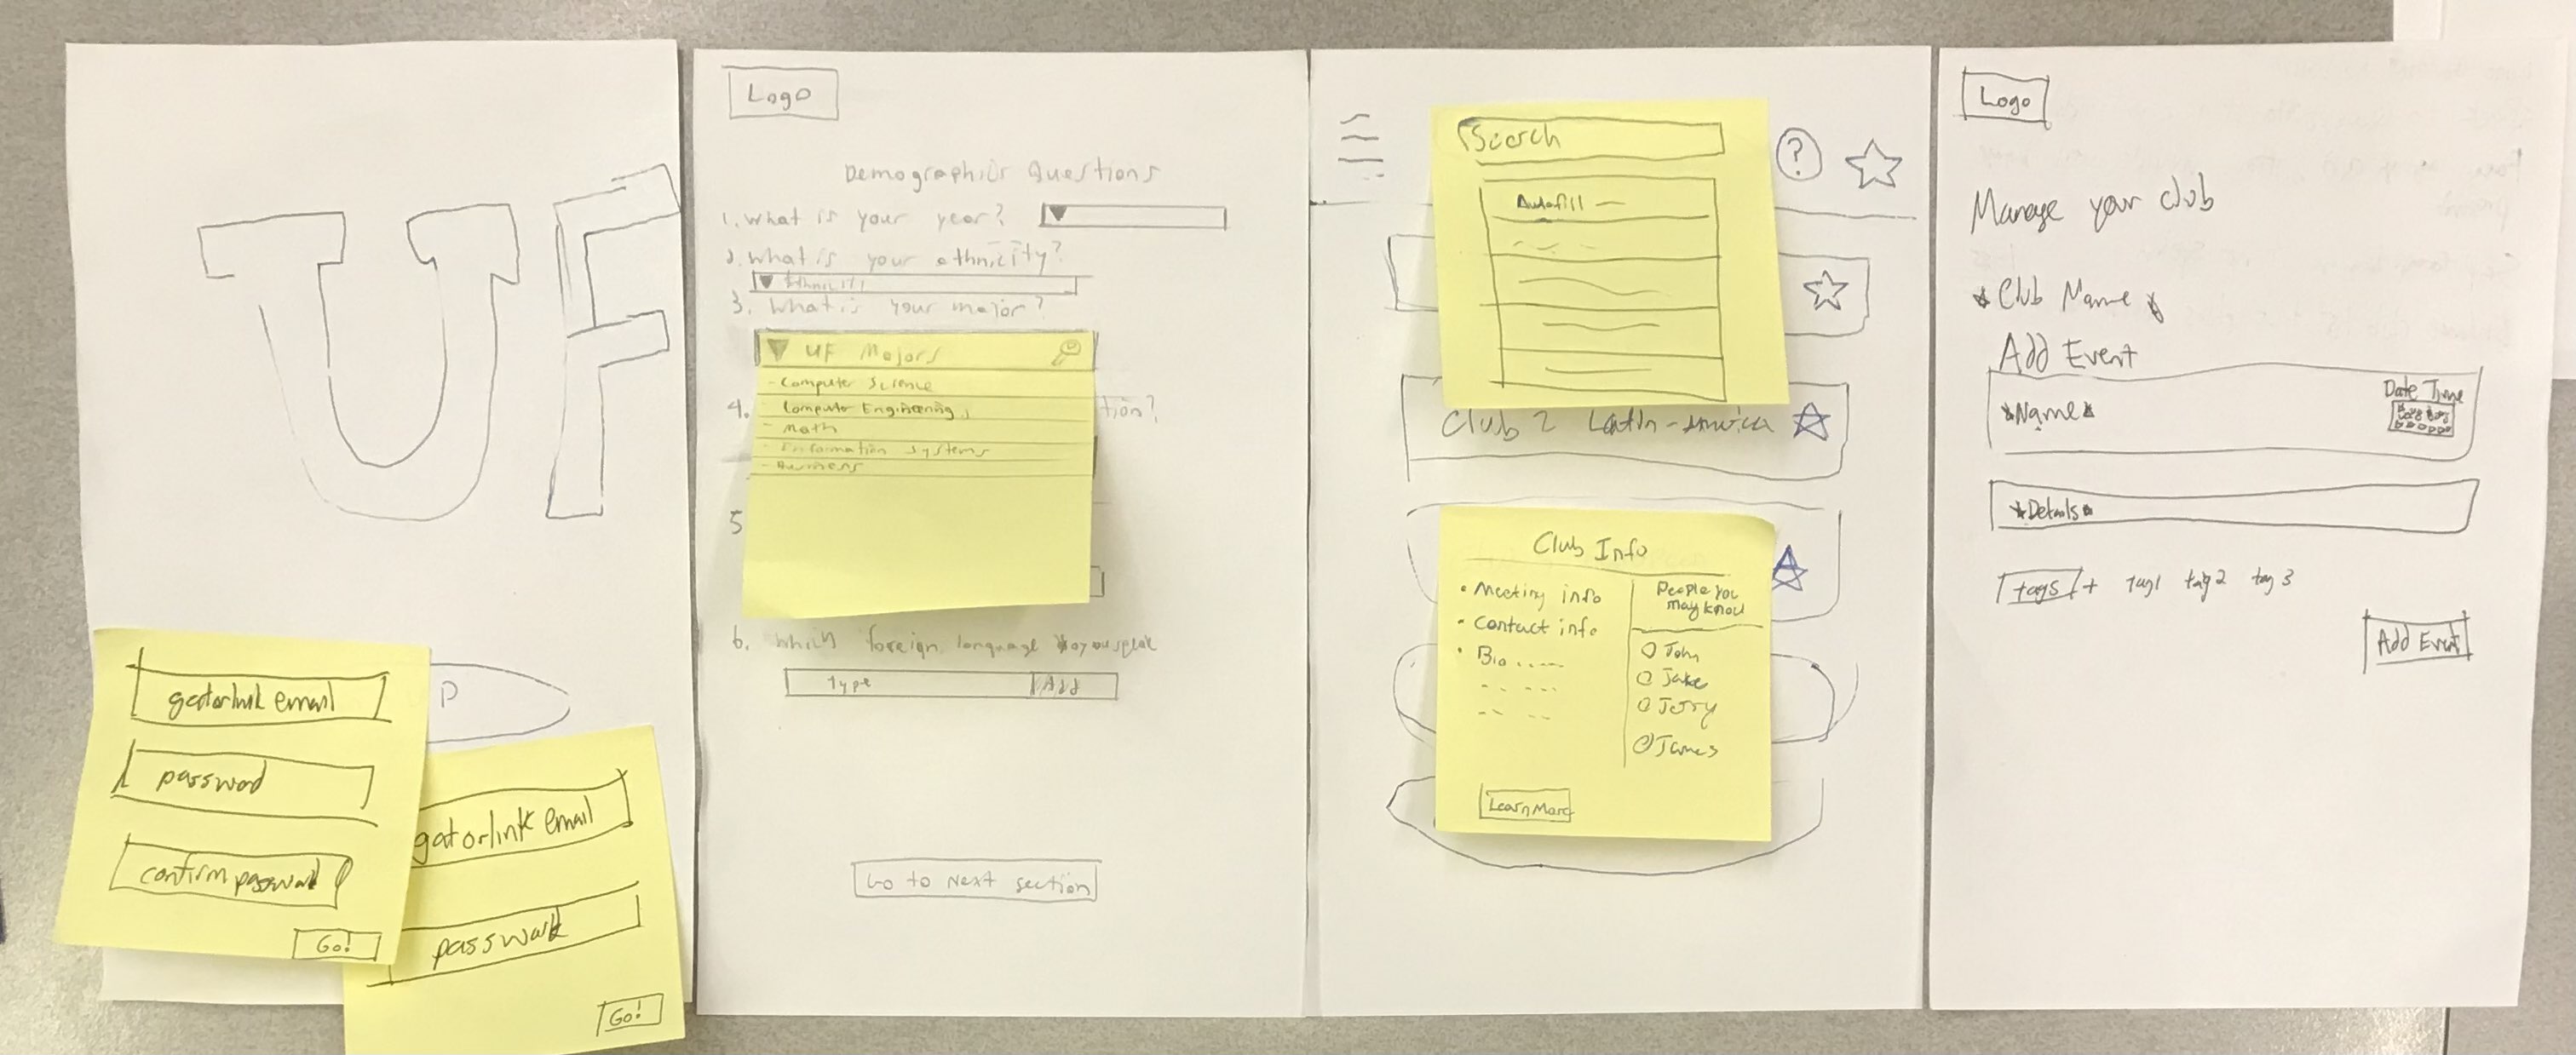 UF
P
gatorlink email
password
confirm password
Go!
gatorlink email
password
Go!
Logo
Demographics Questions
1. What is your year?
2. What is your ethnicity?
Ethnicity
3. What is your major?
UF Majors
- Computer Science
- Computer Engineering
- Math
- Information Systems
- Business
4. tion?
5
6. Which foreign language do you speak
Type Add
Go to Next section
Search
?
Autofill
Club 2 Latin-America
Club Info
• Meeting info
• Contact info
• Bio
People you
may know
John
Jake
Jerry
James
Learn More
Logo
Manage your club
*Club Name*
Add Event
Date Time
*Name*
*Details*
tags + tag1 tag2 tag3
Add Event